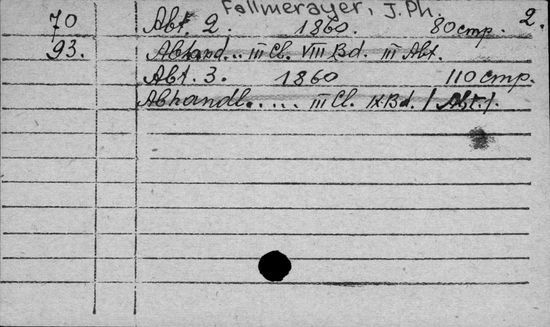 Fallmerayer, J. Ph. 2.
70 Abt. 2. 1860. 80 стр.
93. Abhand... III Cl. VIII Bd. III Abt.
Abt. 3. 1860 110 стр.
Abhandl..... III Cl. IX Bd. / Abt. /.